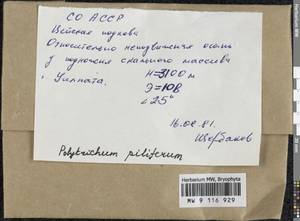 СО АССР
Цейская подкова
Относительно неподвижная осыпь
у подножия скального массива
Уилпата.
H=3100 м
Э=10В
∠25°
16.08.81.
Щербаков
Polytrichum piliferum
Herbarium MW, Bryophyta
MW 9 116 929